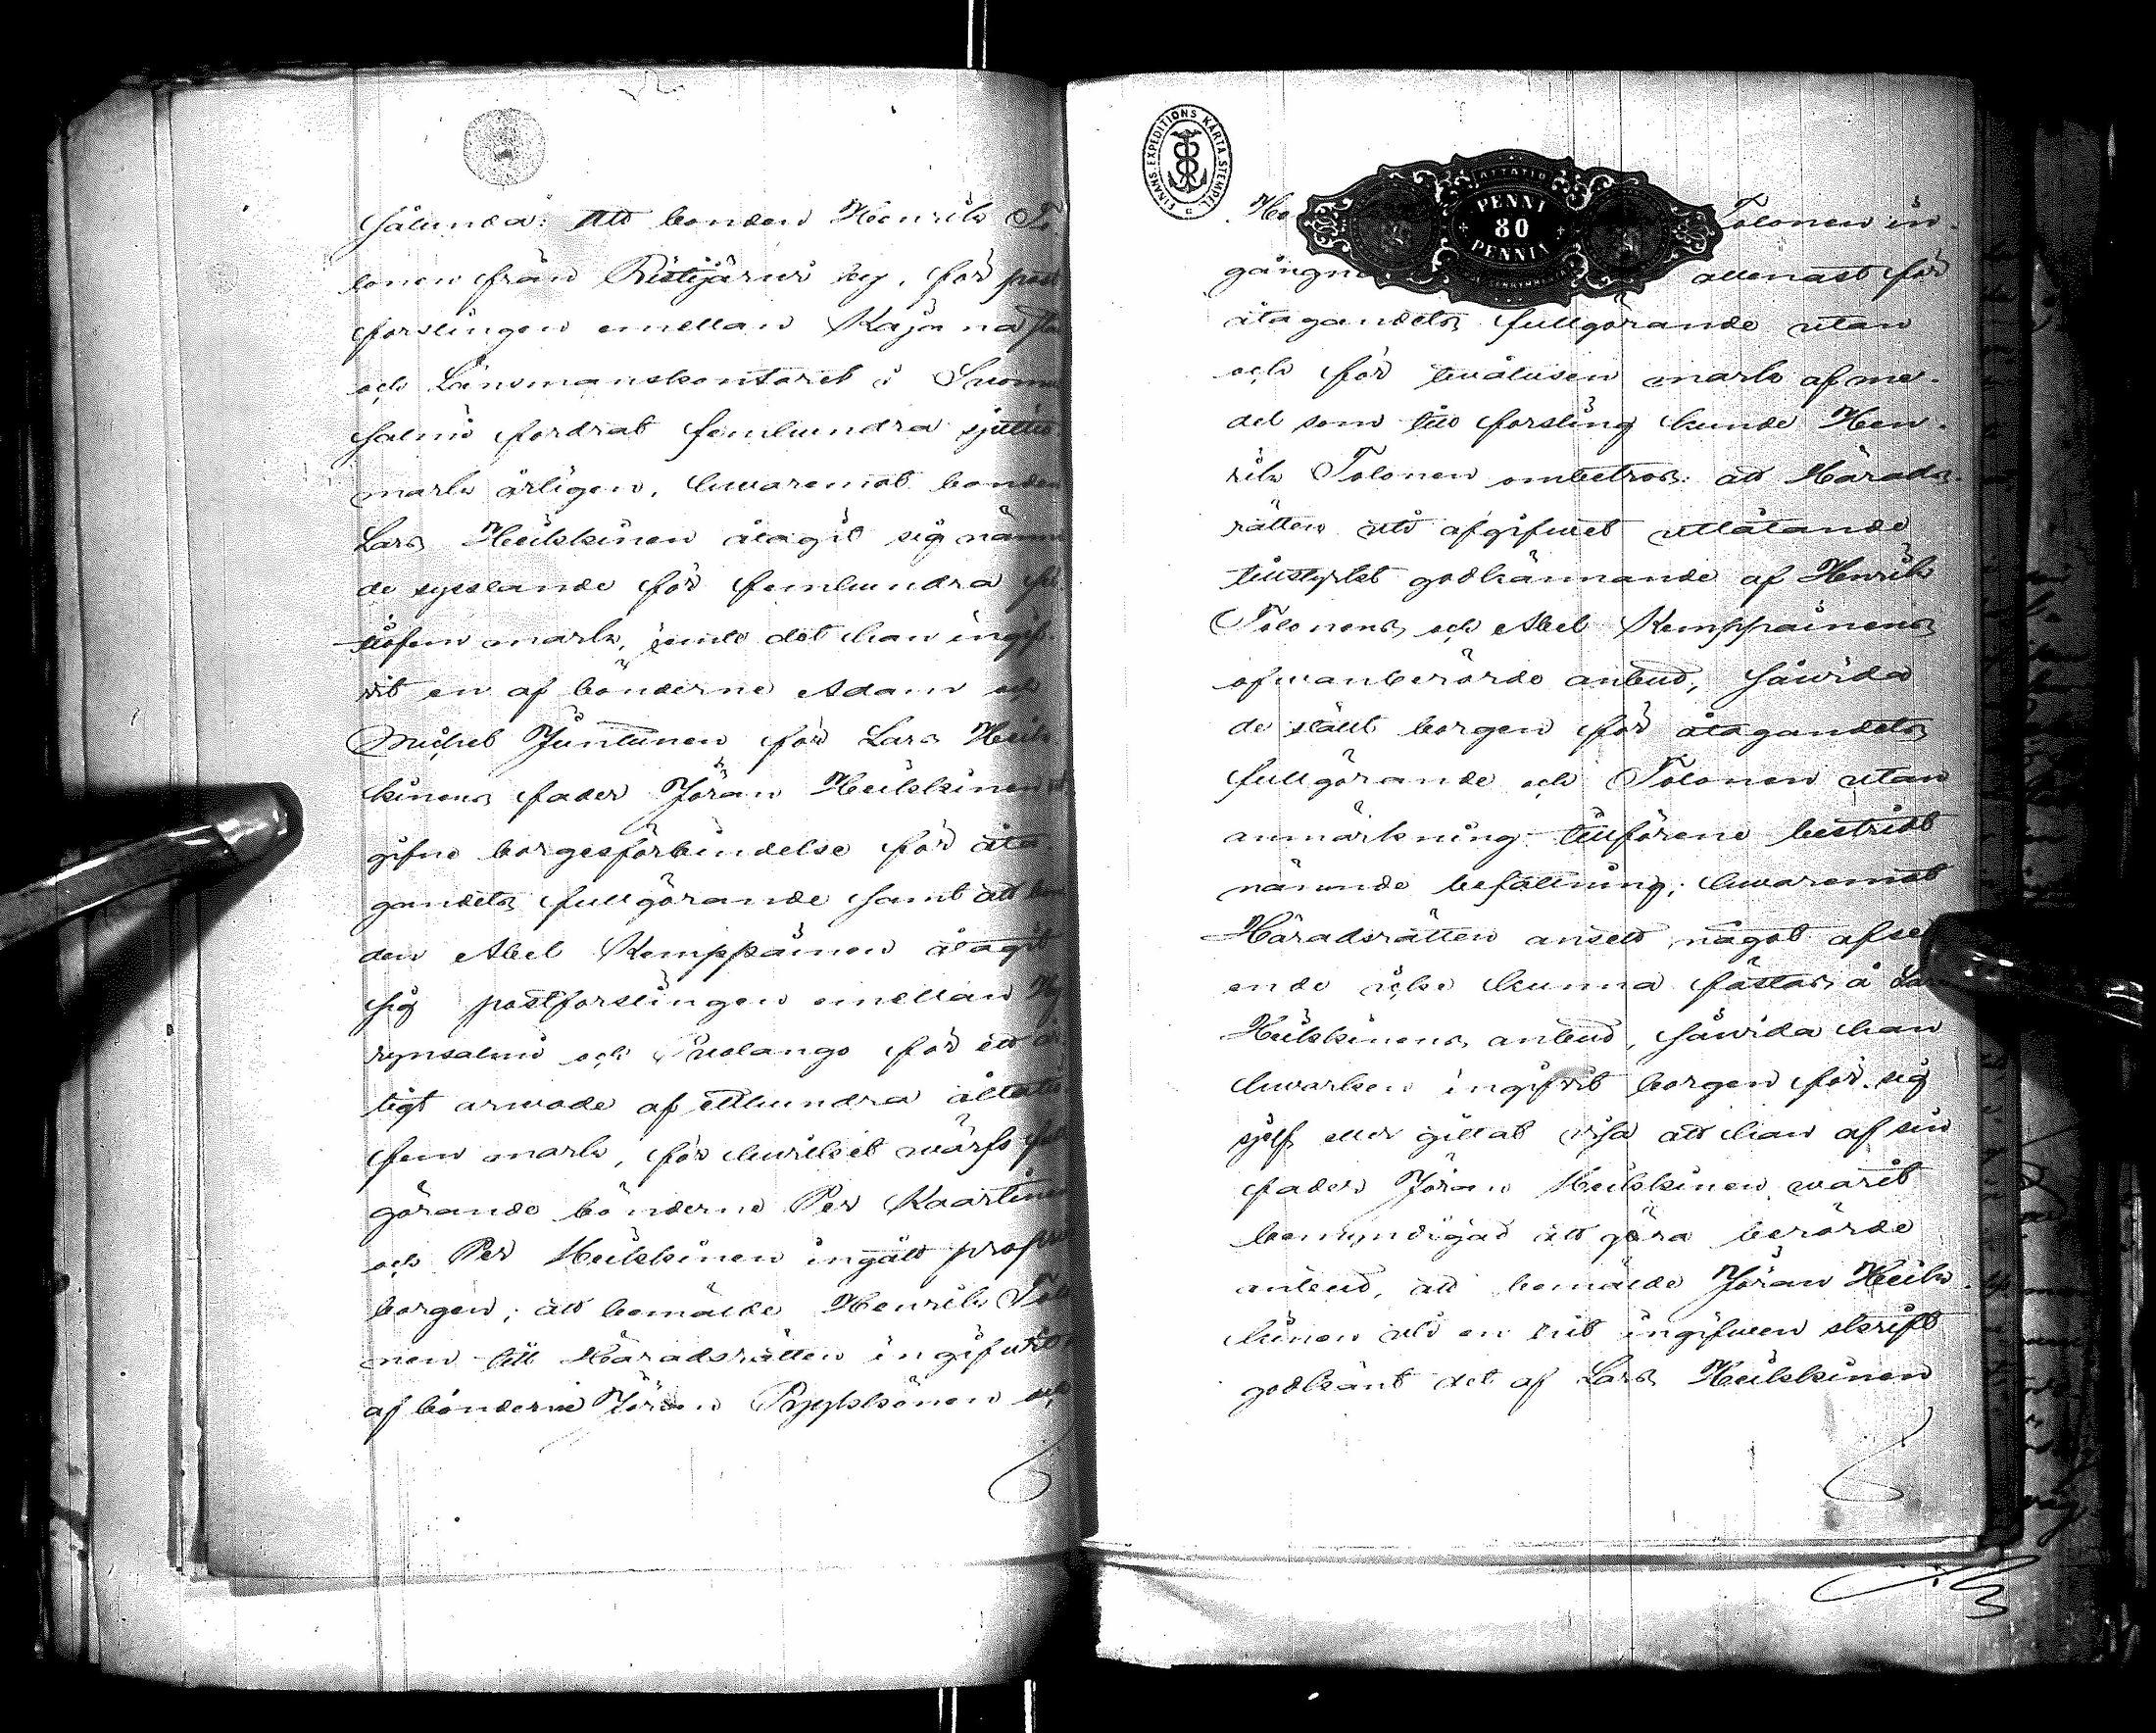 sålunda: Att bonden Henrik To-
lonen från Ristijärvi by, för post
forslingen emellan Kajana sta
och Länsmanskontoret i Suomu
salmi fordrat femhundra sjuttio
mark årligen, hvaremot bonden
Lars Heikkinen åtagit sig nämn
de sysslande för femhundra
tiofem mark, jemte det han ingif-
vit en af bönderne Adam och
Michel Juntunen för Lars Heik-
kinens fader Jöran Heikkinen ut
gifne borgesförbindelse för åta-
gandets fullgörande samt att bon
den Abel Kemppainen åtagit
sig postforslingen emellan Hy
rynsalmi och Puolango för ett år
ligt arwode af etthundra åttatio
fem mark, för hwilket wärfs full
görande bönderne Per Kaartinen
och Per Heikkinen ingått proprie
borgen; att bemälde Henrik Tolo
nen till Häradsrätten ingifwit
af bönderne Jöran Pyykkönen och
FINANS EXPEDITIONS KARTA STEMPEL
PENNI
80
PENNIÄ
He Tolonen in-
gångne allenast för
åtagandets fullgörande utan
och för twåtusen mark af me-
del som till forsling kunde Hen-
rik Tolonen ombetros: att Härads-
rätten uti afgifwet utlåtande
tillstyrkt godkännande af Henrik
Tolonens och Abel Kemppainens
ofwanberörde anbud, såwida
de ställt borgen för åtagandets
fullgörande och Tolonen utan
anmärkning tillförene bestridt
nämnde befattning; hwaremot
Häradsrätten ansett något afse-
ende icke kunna fästas å Lars
Heikkinens anbud, såwida han
hwarken ingifvit borgen för sig
sjelf eller gittat visa att han af sin
fader Jöran Heikkinen warit
bemyndigad att göra berörde
anbud, att bemälde Jöran Heik-
kinen uti en hit ingifwen skrift
godkänt det af Lars Heikkinen